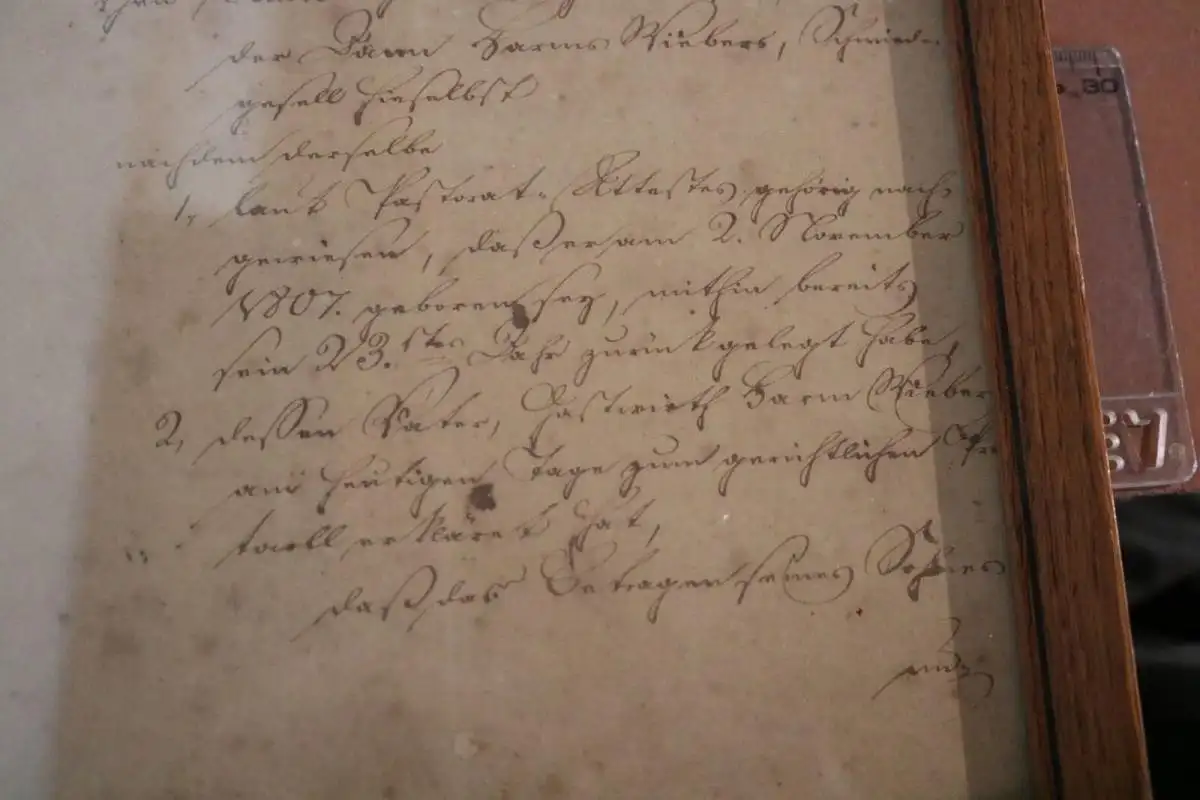 der Johann Harms Wiebers, Schmiede-
gesell hieselbst
nachdem derselbe
1, laut Pastorat-Attestes gehörig nach-
gewiesen, daß er am 2. November
1807. geboren sey, mithin bereits
sein 23.stes Jahr zurückgelegt habe,
2, dessen Vater, Gastwirth Harm Wiebers
am heutigen Tage zum gerichtlichen Pro
tocoll erkläret hat,
daß das Betragen seines Sohnes
30